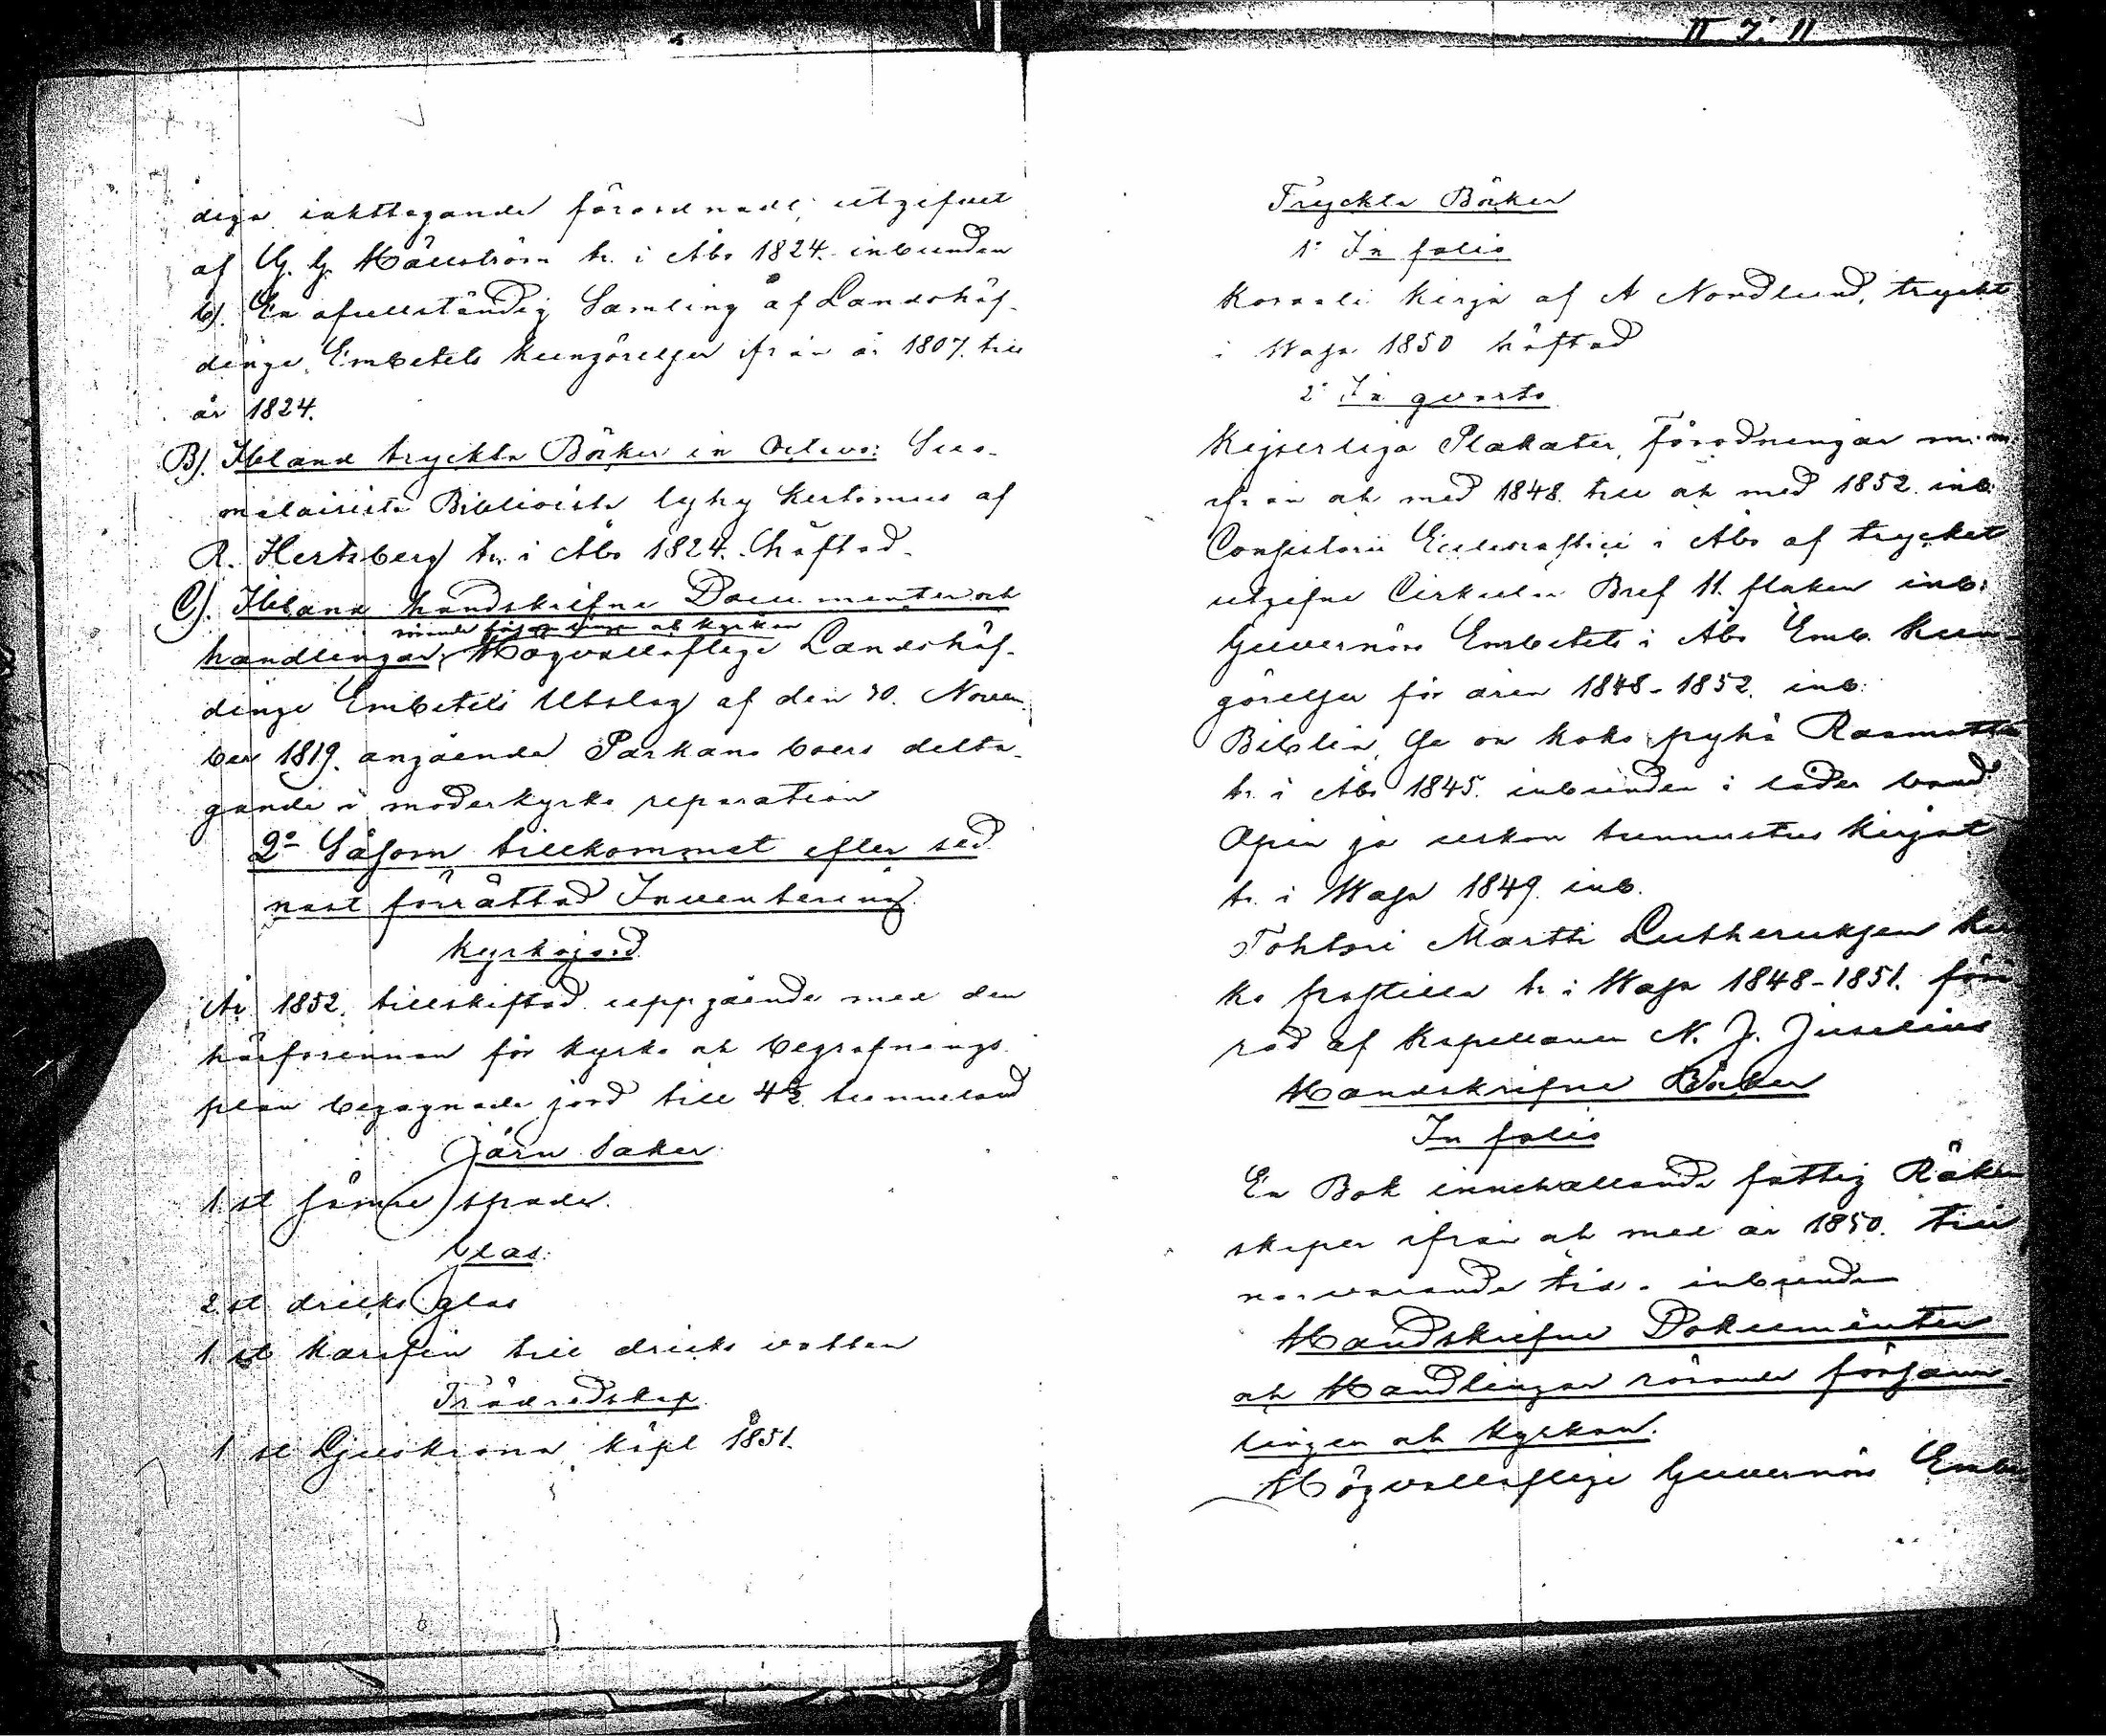 II 7: 11
diga iakttagande förordnade; utgifvet
af G. G. Hällström tr. i Åbo 1824. inbunden
b). En ofullständig Samling af Landshöf-
dinge Embetets kungörelser ifrån år 1807. till
år 1824.
B). Ibland tryckta Böcker in Octavo: Suo-
malaisista Biblioista lyhy kertomus af
R. Hertzberg tr. i Åbo 1824. häftad.
C). Ibland handskrifne Documenter och
rörande församlingen och kyrkan
handlingar, Högvälloflige Landshöf-
dinge Embetets Utslag af den 30. Novem-
ber 1819. angående Parkano boers delta-
gande i moderkyrko reparation
2o Såsom tillkommet efter sed-
nast förrättad Inventering
Kyrkojord
År 1852. tillskiftad uppgående med den
härförinnan för kyrko och begrafnings
plan begagnade jord till 4 1/2 tunneland
Järn Saker
1 st Jämn spade.
Glas
2 st dricks glas
1 st karafin till dricks vatten
Trädredskap
1 st Ljuskrona köpt 1851.
Tryckta Böcker
1o In folio
Koraali Kirja af A Nordlund, tryckt
i Wasa 1850 häftad
2o In qvarto
Kejserliga Plakater, Förodningar m. m.
ifrån och med 1848. till och med 1852. inb.
Consistorii Ecclesiastici i Åbo af trycket
utgifne Cirkulär Bref 11. stycken inb:
Guvernörs Embetets i Åbo Emb. Kun-
görelser för åren 1848-1852. inb:
Biblia, Se on koko pyhä Raamattu
tr. i Åbo 1845. inbunden i läder band
Opin ja uskon tunnustus kirjat
tr. i Wasa 1849. inb.
Tohtori Martti Lutheruksen kir
ko postilla tr. i Wasa 1848-1851. förä
rad af Kapellanen N. J. Juselius
Handskrifne Böcker
In folio
En Bok innehållande fattig Räken
skaper ifrån och med år 1850. till
narvarande tid. inbunden
Handskrifne Dokumenter
och Handlingar rörande försam-
lingen och Kyrkan.
Högvällofliga Guvernörs Embe